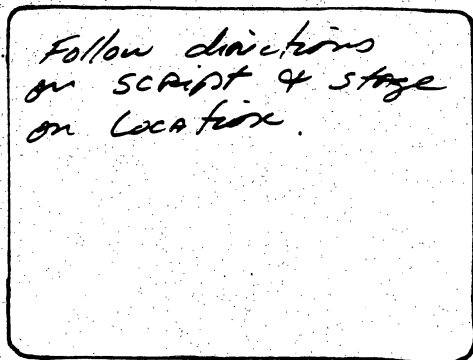 Follow directions
on SCRipt & stage
on LOCATION.